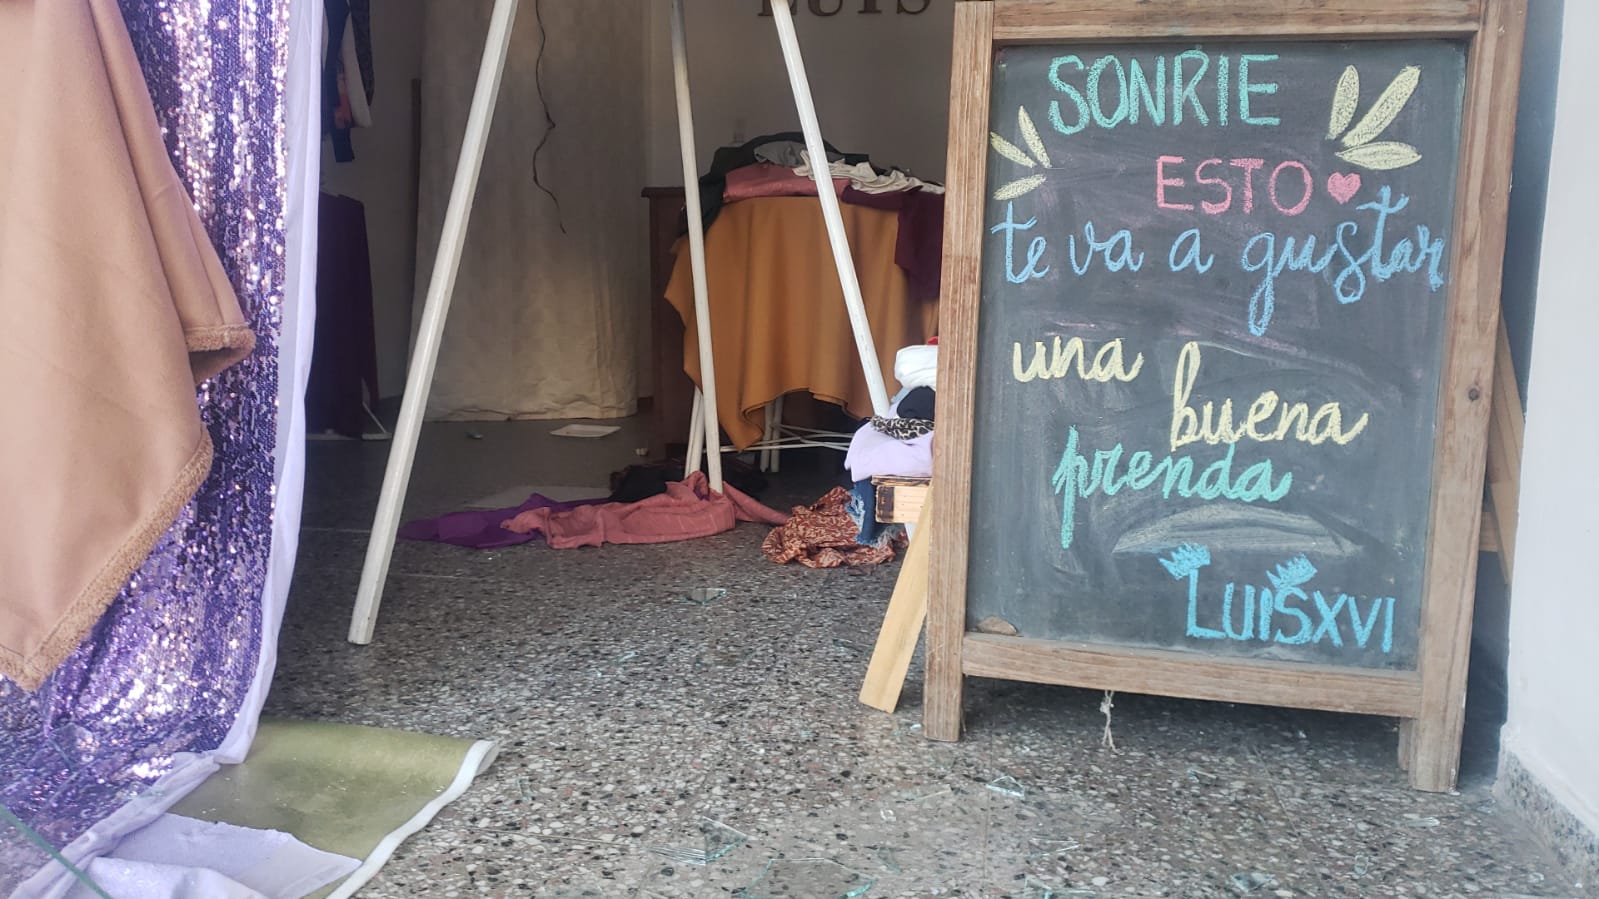 LUIS
SONRIE
ESTO
te va a gustar
una
buena
prenda
LUISXVI